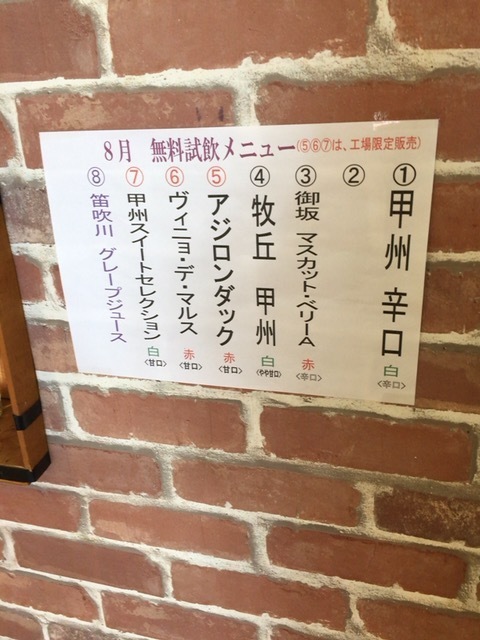 8月 無料試飲メニュー(⑤⑥⑦は、工場限定販売)
① 甲州 辛口 白 <辛口>
②
③ 御坂 マスカット・ベリーA 赤 <辛口>
④ 牧丘 甲州 白 <やや甘口>
⑤ アジロンダック 赤 <甘口>
⑥ ヴィニョ・デ・マルス 赤 <甘口>
⑦ 甲州スイートセレクション 白 <甘口>
⑧ 笛吹川 グレープジュース